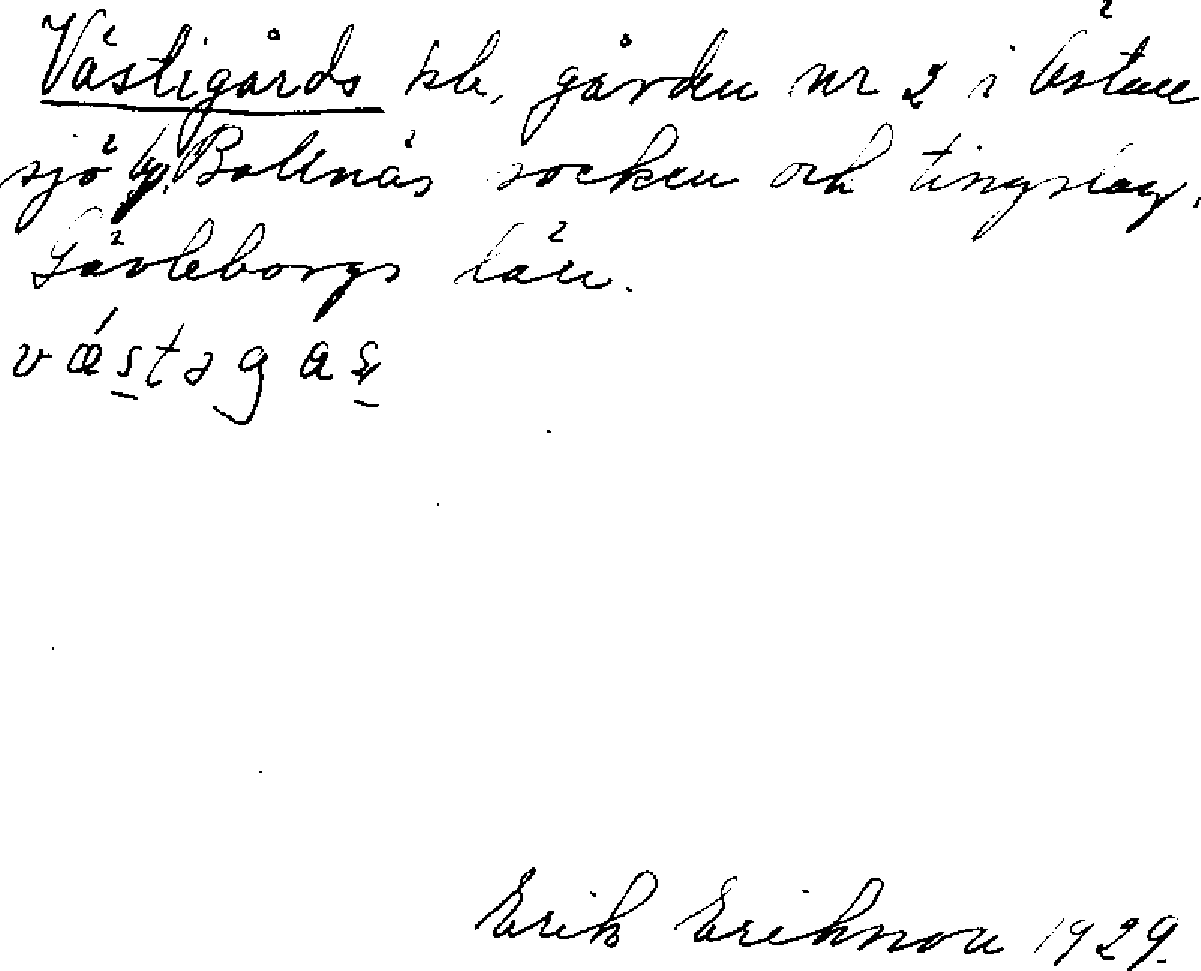 Västigårds kb, gården nr 2 i Östan
sjö by, Bollnäs socken och tingslag,
Gävleborgs län.
væ̀stəgaʂ
Erik Erikson 1929.